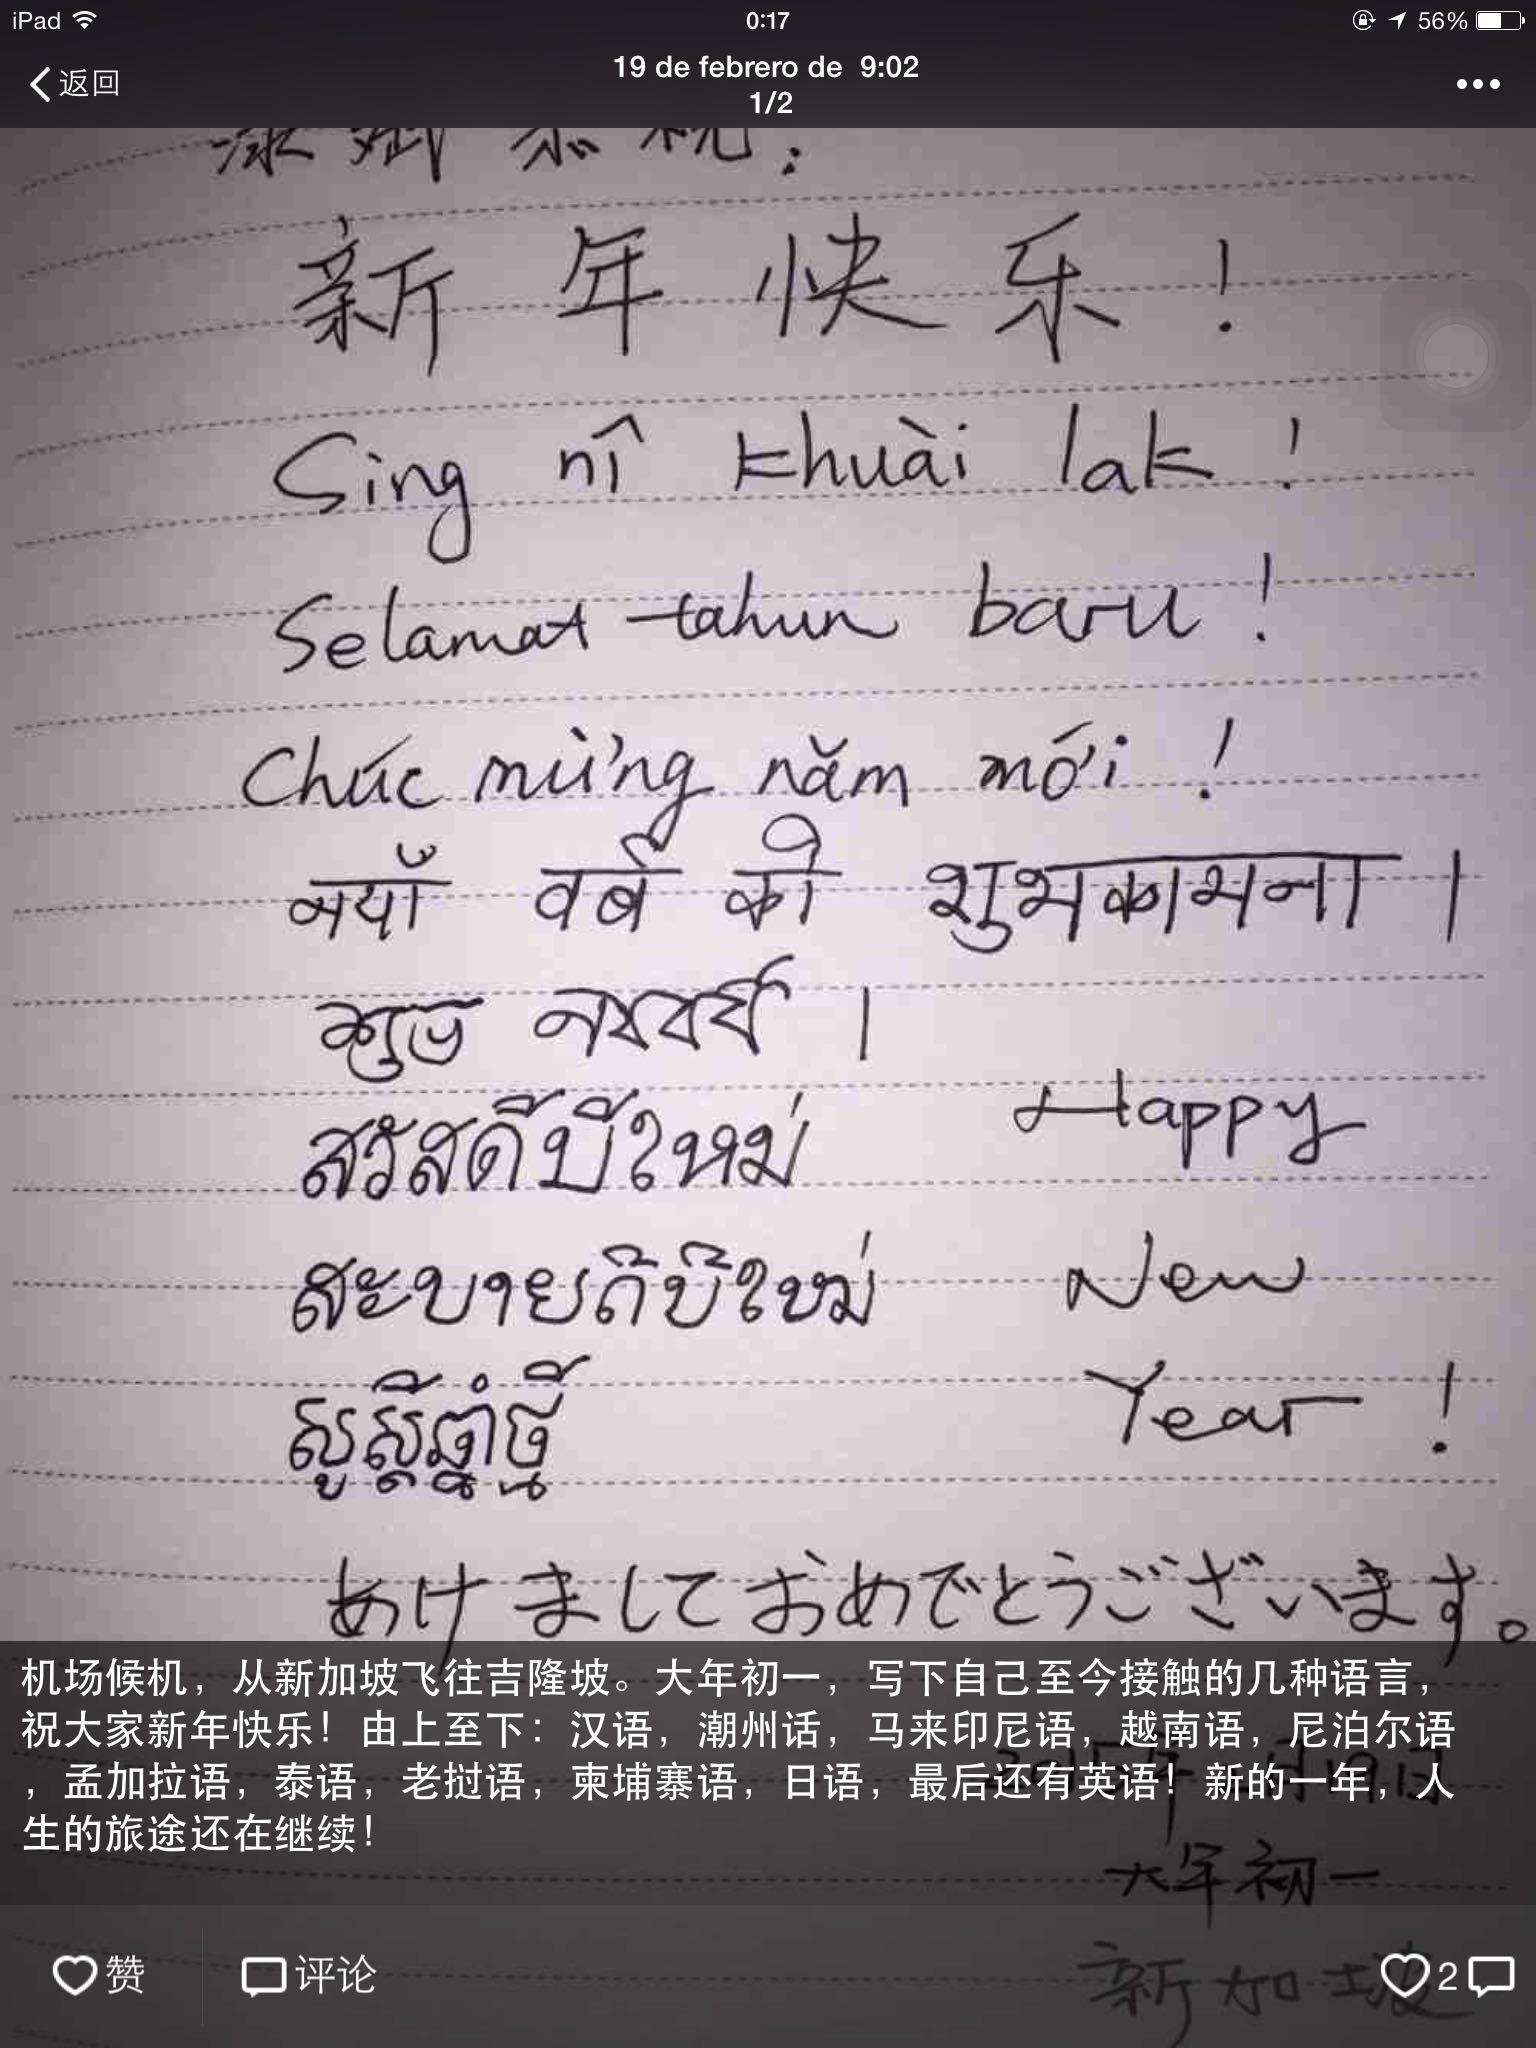 iPad 0:17 56%
返回 19 de febrero de 9:02
1/2
恭祝：
新年快乐！
Sing nî khuài lak!
Selamat tahun baru!
Chúc mừng năm mới!
नयाँ वर्ष की शुभकामना ।
শুভ নববর্ষ ।
สวัสดีปีใหม่ Happy
ສະບາຍດີປີໃໝ່ New
សួស្តីឆ្នាំថ្មី Year!
あけましておめでとうございます。
机场候机，从新加坡飞往吉隆坡。大年初一，写下自己至今接触的几种语言，
祝大家新年快乐！由上至下：汉语，潮州话，马来印尼语，越南语，尼泊尔语
，孟加拉语，泰语，老挝语，柬埔寨语，日语，最后还有英语！新的一年，人
生的旅途还在继续！
2015年2月19日
大年初一
新加坡
赞 评论 2